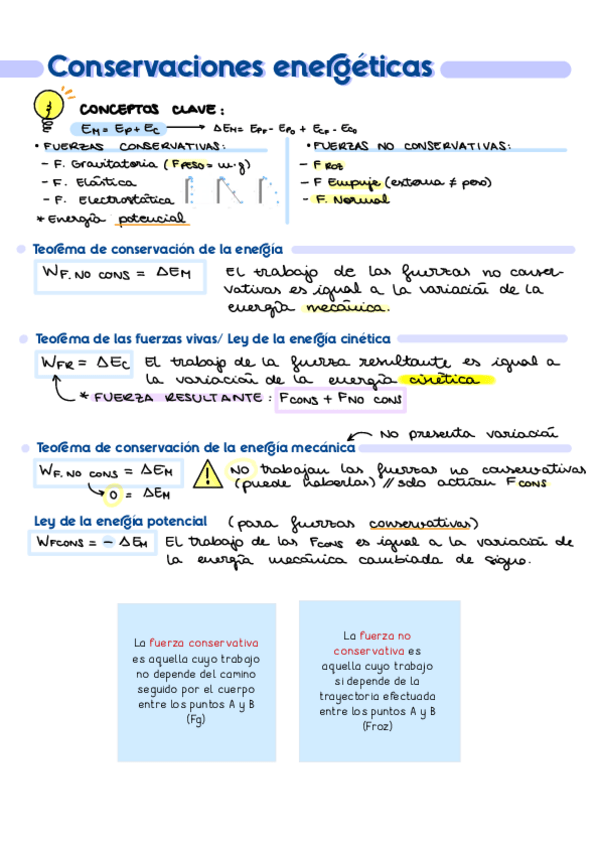 Conservaciones energéticas
CONCEPTOS CLAVE:
EM = EP + EC → ΔEM = EPF - EPO + ECF - ECO
• FUERZAS CONSERVATIVAS:
- F. Gravitatoria (FPESO = m·g)
- F. Elástica
- F. Electrostática
* Energía potencial
• FUERZAS NO CONSERVATIVAS:
- F ROZ
- F Empuje (externa ≠ peso)
- F. Normal
Teorema de conservación de la energía
WF. NO CONS = ΔEM
El trabajo de las fuerzas no conser-
vativas es igual a la variación de la
energía mecánica.
Teorema de las fuerzas vivas/ Ley de la energía cinética
WFR = ΔEC
El trabajo de la fuerza resultante es igual a
la variación de la energía cinética
* FUERZA RESULTANTE: FCONS + FNO CONS
No presenta variación
Teorema de conservación de la energía mecánica
WF. NO CONS = ΔEM
0 = ΔEM
NO trabajan las fuerzas no conservativas
(puede haberlas) // solo actúan FCONS
Ley de la energía potencial (para fuerzas conservativas)
WFCONS = - ΔEM
El trabajo de las FCONS es igual a la variación de
la energía mecánica cambiada de signo.
La fuerza conservativa
es aquella cuyo trabajo
no depende del camino
seguido por el cuerpo
entre los puntos A y B
(Fg)
La fuerza no
conservativa es
aquella cuyo trabajo
si depende de la
trayectoria efectuada
entre los puntos A y B
(Froz)